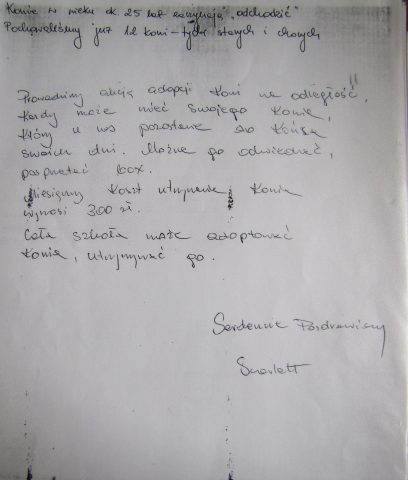 Konie w wieku ok. 25 lat zaczynają „odchodzić"
Pochowaliśmy już 12 koni - tych starych i chorych
Prowadzimy akcję adopcji koni na odległość,!!
Każdy może mieć swojego konia,
który u nas pozostanie do końca
swoich dni. Można go odwiedzać,
posprzątać box.
Miesięczny koszt utrzymania konia
wynosi 300 zł.
Cała szkoła może adoptować
konia, utrzymywać go.
Serdecznie Pozdrawiamy
Scarlett